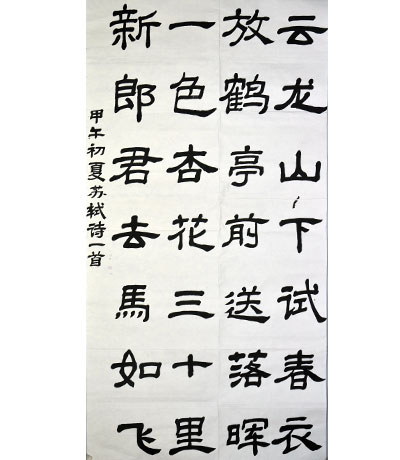 云龙山下试春衣
放鹤亭前送落晖
一色杏花三十里
新郎君去马如飞
甲午初夏苏轼诗一首